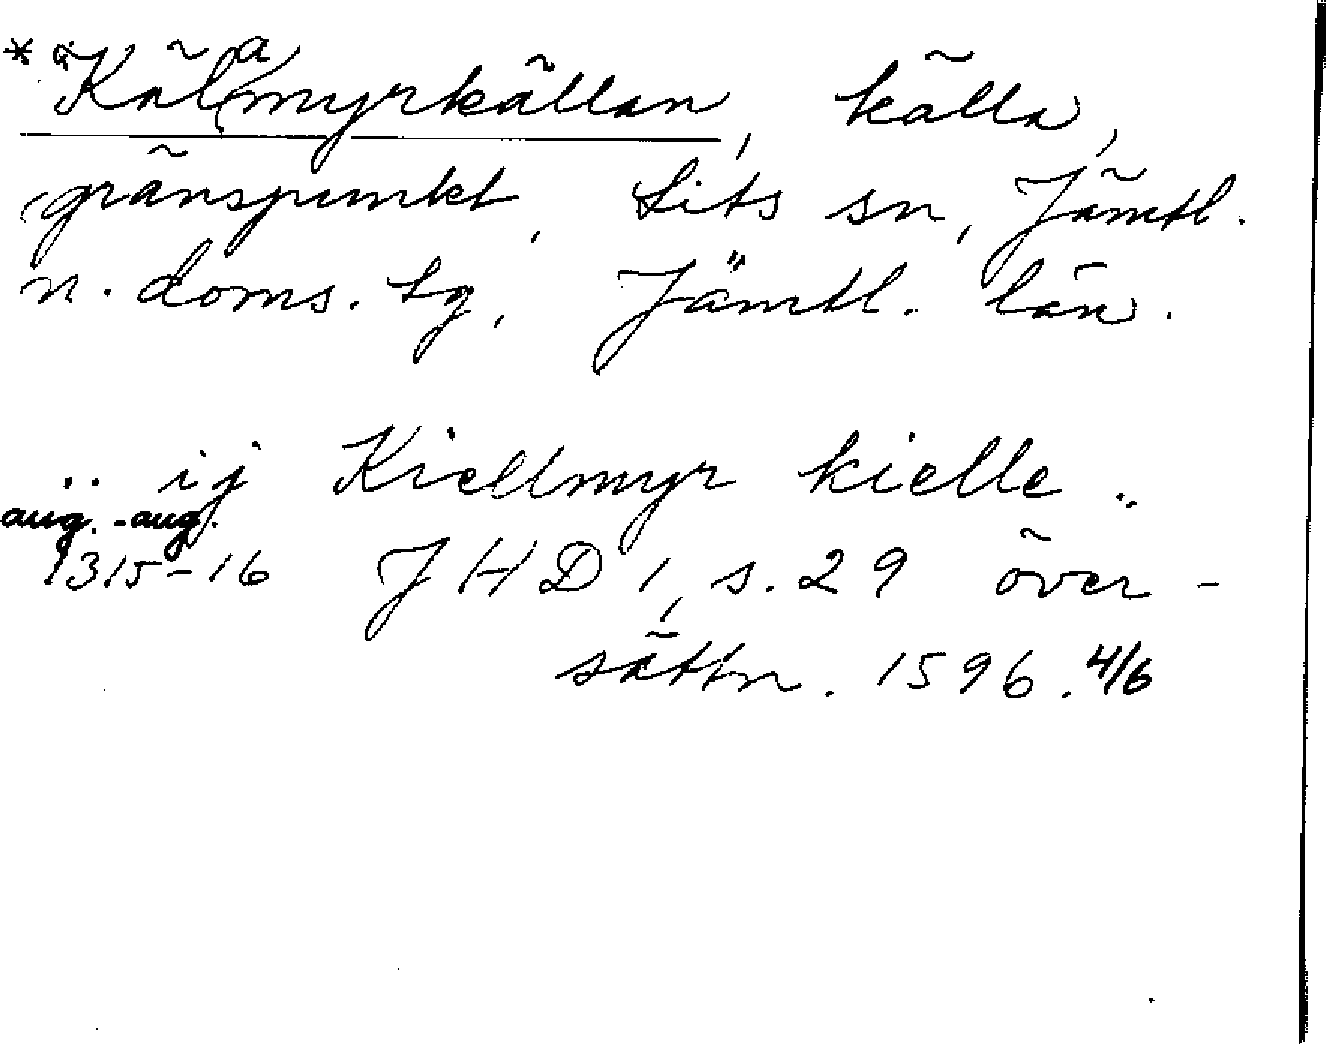 *Kälamyrkällan, källa,
gränspunkt, Lits sn, Jämtl.
n. doms. tg, Jämtl. län.
.. ij Kiellmyr kielle ..
aug. - aug.
1315-16 JHD 1, s. 29 över-
sättn. 1596. 4/6